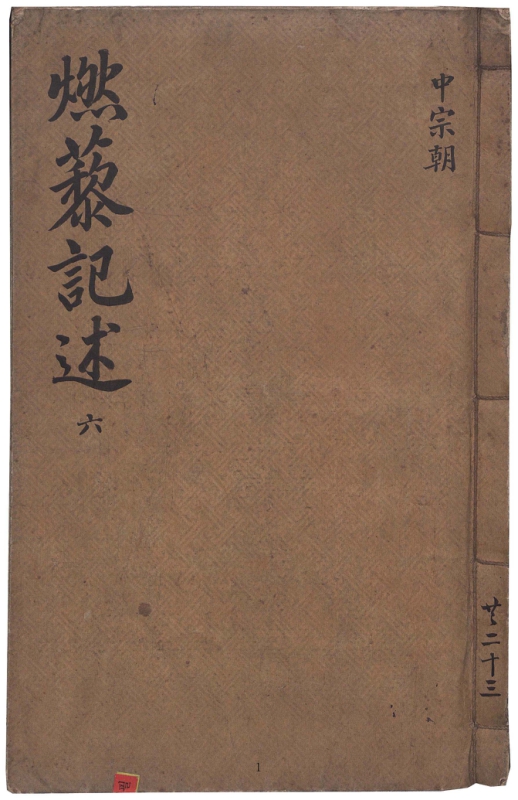 中宗朝
燃藜記述 六
共二十三
1